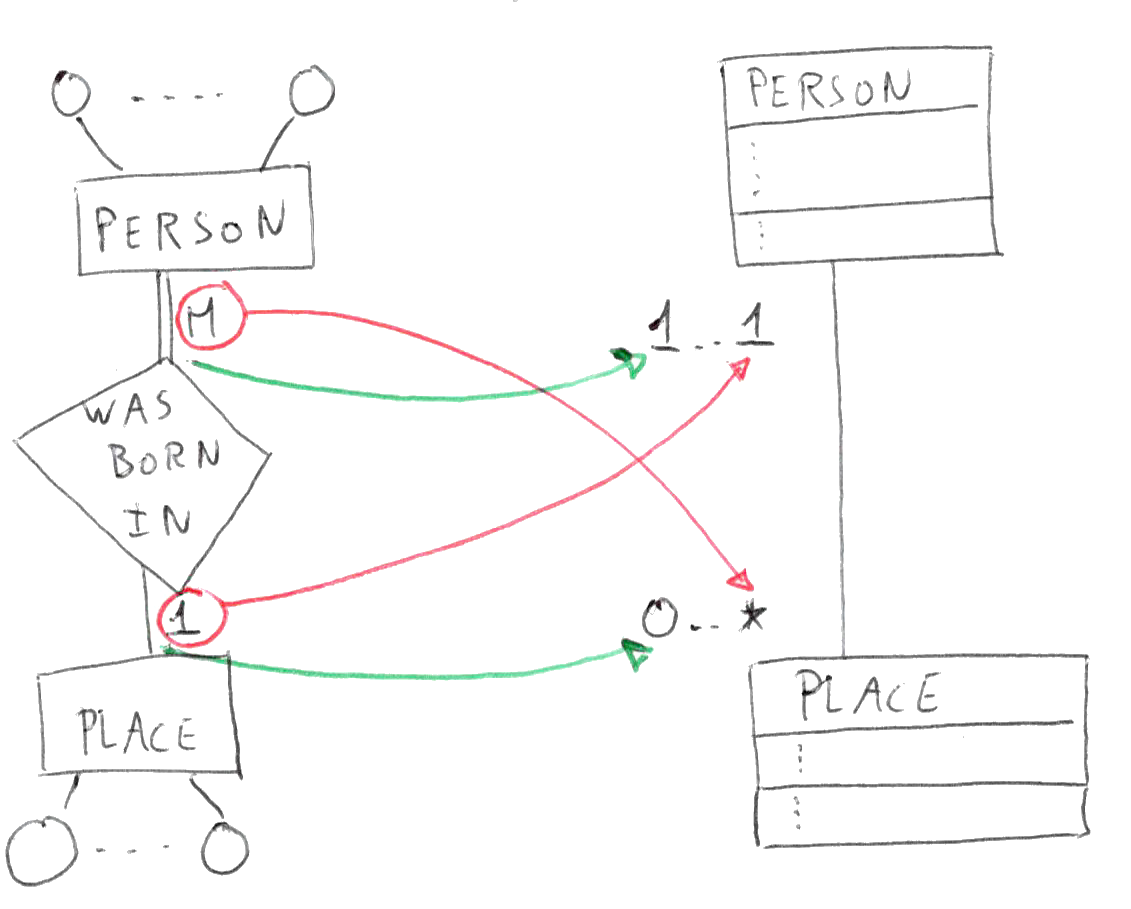 PERSON
M
WAS
BORN
IN
1
PLACE
PERSON
1...1
0..*
PLACE